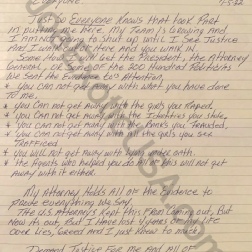 Everyone
Just so Everyone Knows that took Part
in putting me here. My Team is Growing And
I Am Not Going to Shut up until I See Justice
And I want out of here And you walk in.
Some How we Get the President, the Attorney
General, Congress, the 200 Hundred Patriots
We Sent the Evidence to Attention.
* You Can Not get Away with what you have done
To me.
* you Can Not get away with the girls you Raped.
* you Can Not get away with the Identities you stole
* you Can Not get out with the Banks you Frauded.
* you Can Not get away with the girls you Sex
Trafficed
* You will Not get Away with lying under oath
* the Agents who helped you do All of this will not get
away with it either.
My Attorney Holds All of the Evidence to
Prove everything We Say.
The U.S. Attorney's Kept this From Coming out, But
Now its out. But I have lost years of my life
Over Lies, Greed and I Just Knew to much.
I Demand Justice For Me And All of